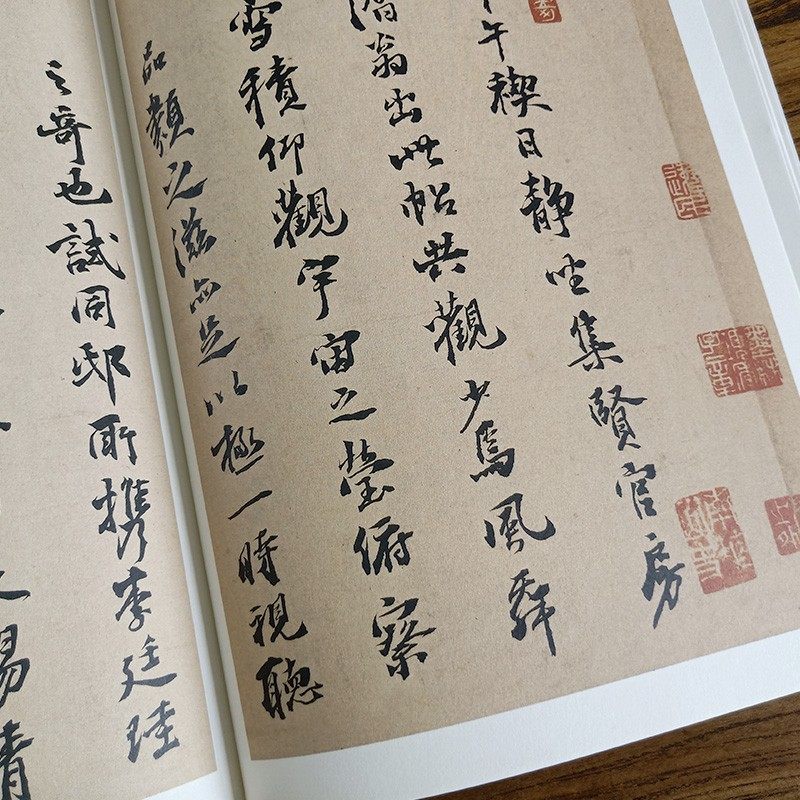 午禊日静坐集賢官房
翁出此帖共觀少焉風舞
雪積仰觀宇宙之瑩俯察
品類之滋亦足以極一時視聽
之奇也試同邸所攜李廷珪
易清